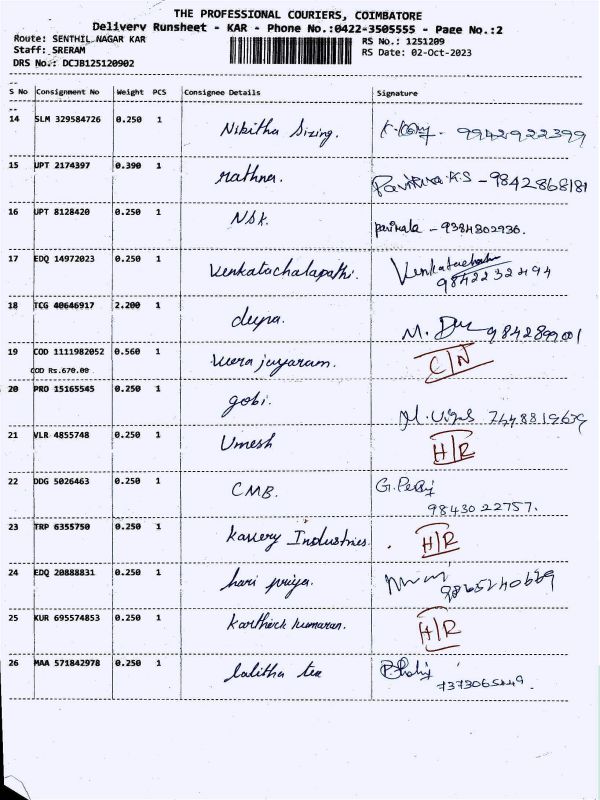 THE PROFESSIONAL COURIERS, COIMBATORE
Delivery Runsheet - KAR - Phone No.:0422-3505555 - Page No.:2
Route: SENTHIL NAGAR KAR
RS No.: 1251209
Staff: SRERAM
RS Date: 02-Oct-2023
DRS No.: DCJB125120902
S No Consignment No Weight PCS Consignee Details Signature
14 SLM 329584726 0.250 1 Nikitha Sizing. 9942922399
15 UPT 2174397 0.390 1 rathna. Pavithra K.S - 9842868181
16 UPT 8128420 0.250 1 NSK. parimala - 9384802936.
17 EDQ 14972023 0.250 1 Venkatachalapathi. Venkatachala
9842232494
18 TCG 40646917 2.200 1 deepa. M. 9842899001
19 COD 1111982052 0.560 1 Veera jayaram. C/N
COD Rs.670.00
20 PRO 15165545 0.250 1 gobi. 7448819679
21 VLR 4855748 0.250 1 Umesh H/R
22 DDG 5026463 0.250 1 CMB. G.
9843022757.
23 TRP 6355750 0.250 1 Kavery Industries. H/R
24 EDQ 20888831 0.250 1 hari priya. 9865240669
25 KUR 695574853 0.250 1 Karthick kumaran. H/R
26 MAA 571842978 0.250 1 lalitha tex